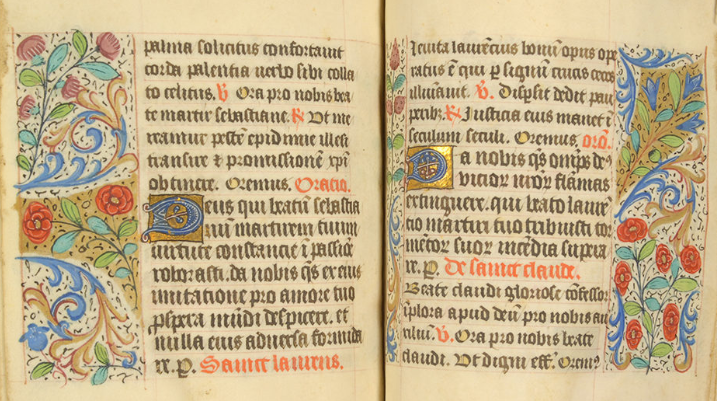 palma solicitus confortauit
corda palentia uerbo sibi colla
to celitus. ℣ Ora pro nobis bea
te martir sebastiane. ℟ Vt me
reamur pestē epidimie illesi
transire ⁊ promissionē xp̄i
obtinere. Oremus. Oracio.
Deus qui beatū sebastia
num martirem tuum
uirtute constancie ī passiōe
roborasti. da nobis q̄s ex eius
imitatione pro amore tuo
prospera mūdi despicere. et
nulla eius aduersa formida
re. p. Sainct laurens.
Leuita laurēcius bonū opus ope
ratus ē qui p signū crucis cecos
illuīauit. ℣. Dispsit dedit pau
peribꝫ. ℟ Justicia eius manet ī
seculum seculi. Oremus. orō.
Da nobis q̄s om̄ps deꝰ
vicior̄ nr̄or̄ flāmas
extinguere. qui beato laurē
cio martiri tuo tribuisti tor
mētor̄ suor̄ incēdia supera
re. p. De sainct claude.
Beate claudi gloriose cōfessor
īplora apud deū pro nobis au
xiliū. ℣. Ora pro nobis beate
claudi. Vt digni eff. Oremꝰ